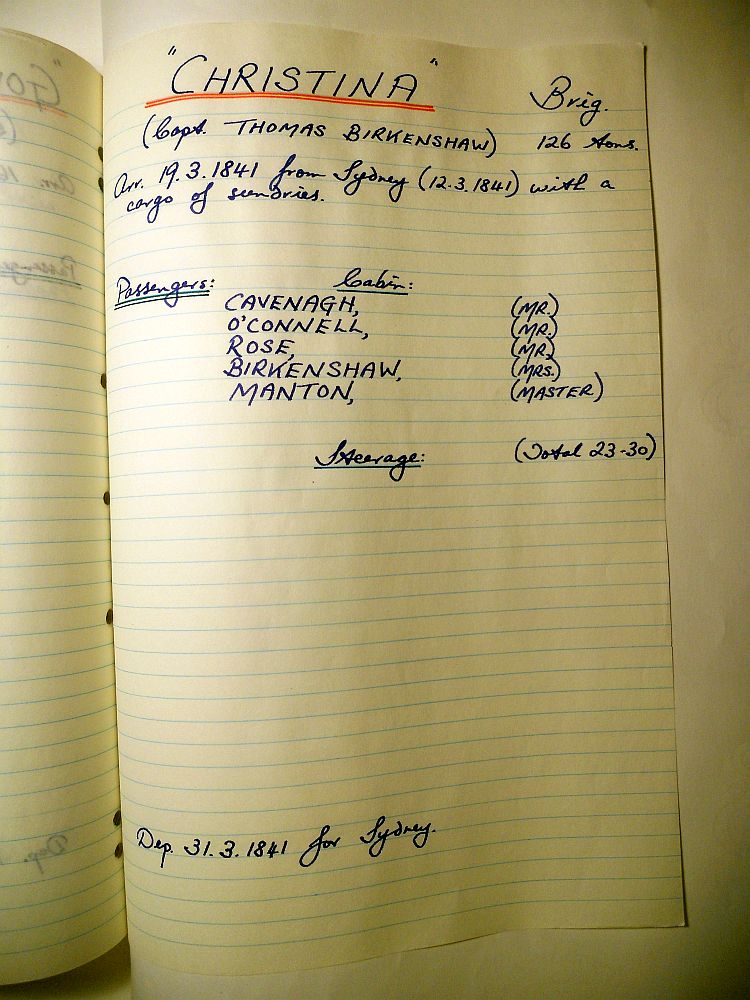 "CHRISTINA" Brig.
(Capt. THOMAS BIRKENSHAW) 126 tons.
Arr. 19.3.1841 from Sydney (12.3.1841) with a
cargo of sundries.
Passengers: Cabin:
CAVENAGH, (MR.)
O'CONNELL, (MR.)
ROSE, (MR.)
BIRKENSHAW, (MRS.)
MANTON, (MASTER)
Steerage: (Total 23-30)
Dep. 31.3.1841 for Sydney.